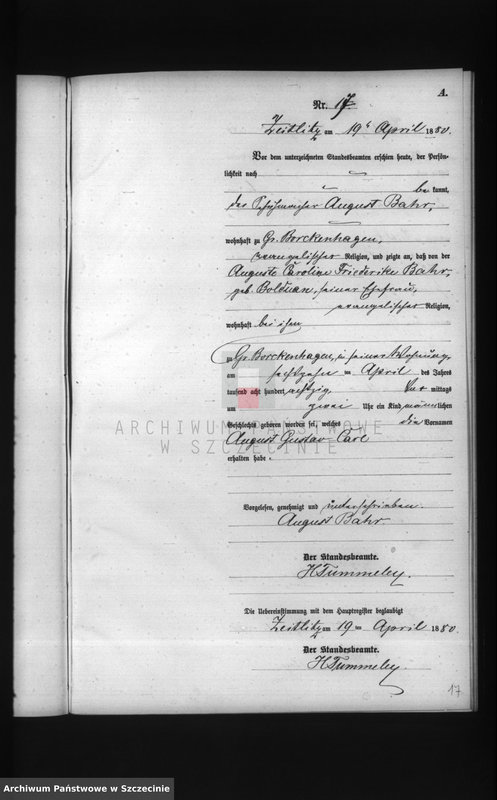 A.
Nr. 17
Zeitlitz am 19t April 1880.
Vor dem unterzeichneten Standesbeamten erschien heute, der Persön-
lichkeit nach
bekannt,
der Schuhmacher August Bahr,
wohnhaft zu Gr. Borckenhagen,
evangelischer Religion, und zeigte an, daß von der
Auguste Caroline Friederike Bahr,
geb. Bolduan, seiner Ehefrau,
evangelischer Religion,
wohnhaft bei ihm
zu Gr. Borckenhagen, in seiner Wohnung,
am sechszehn ten April des Jahres
tausend acht hundert achtzig, Vor mittags
um zwei Uhr ein Kind männlichen
Geschlechts geboren worden sei, welches die Vornamen
August Gustav Carl
erhalten habe.
ARCHIWUM PAŃSTWOWE
W SZCZECINIE
Vorgelesen, genehmigt und unterschrieben.
August Bahr
Der Standesbeamte.
H Tummeley.
Die Uebereinstimmung mit dem Hauptregister beglaubigt
Zeitlitz am 19 ten April 1880.
Der Standesbeamte.
H Tummeley
17
Archiwum Państwowe w Szczecinie